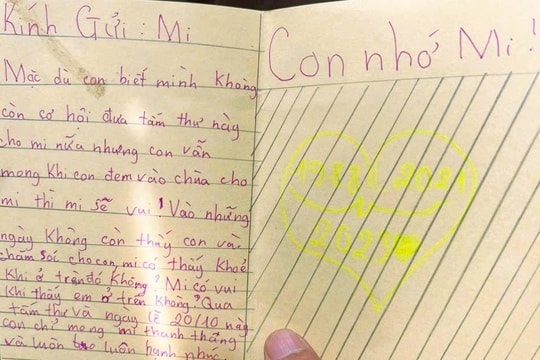 Kính Gửi: Mi
Mặc dù con biết mình không
còn cơ hội đưa tấm thư này
cho mi nữa nhưng con vẫn
mong khi con đem vào chùa cho
mi thì mi sẽ vui! Vào những
ngày không còn thấy con và
chăm sóc cho con, mi có thấy khoẻ
khi ở trên đó không? Mi có vui
khi thấy em ở trên không? Qua
tấm thư và ngày lễ 20/10 này
con chỉ mong mi thanh thẳng
và luôn luôn hạnh phúc!
Con nhớ Mi!
2023